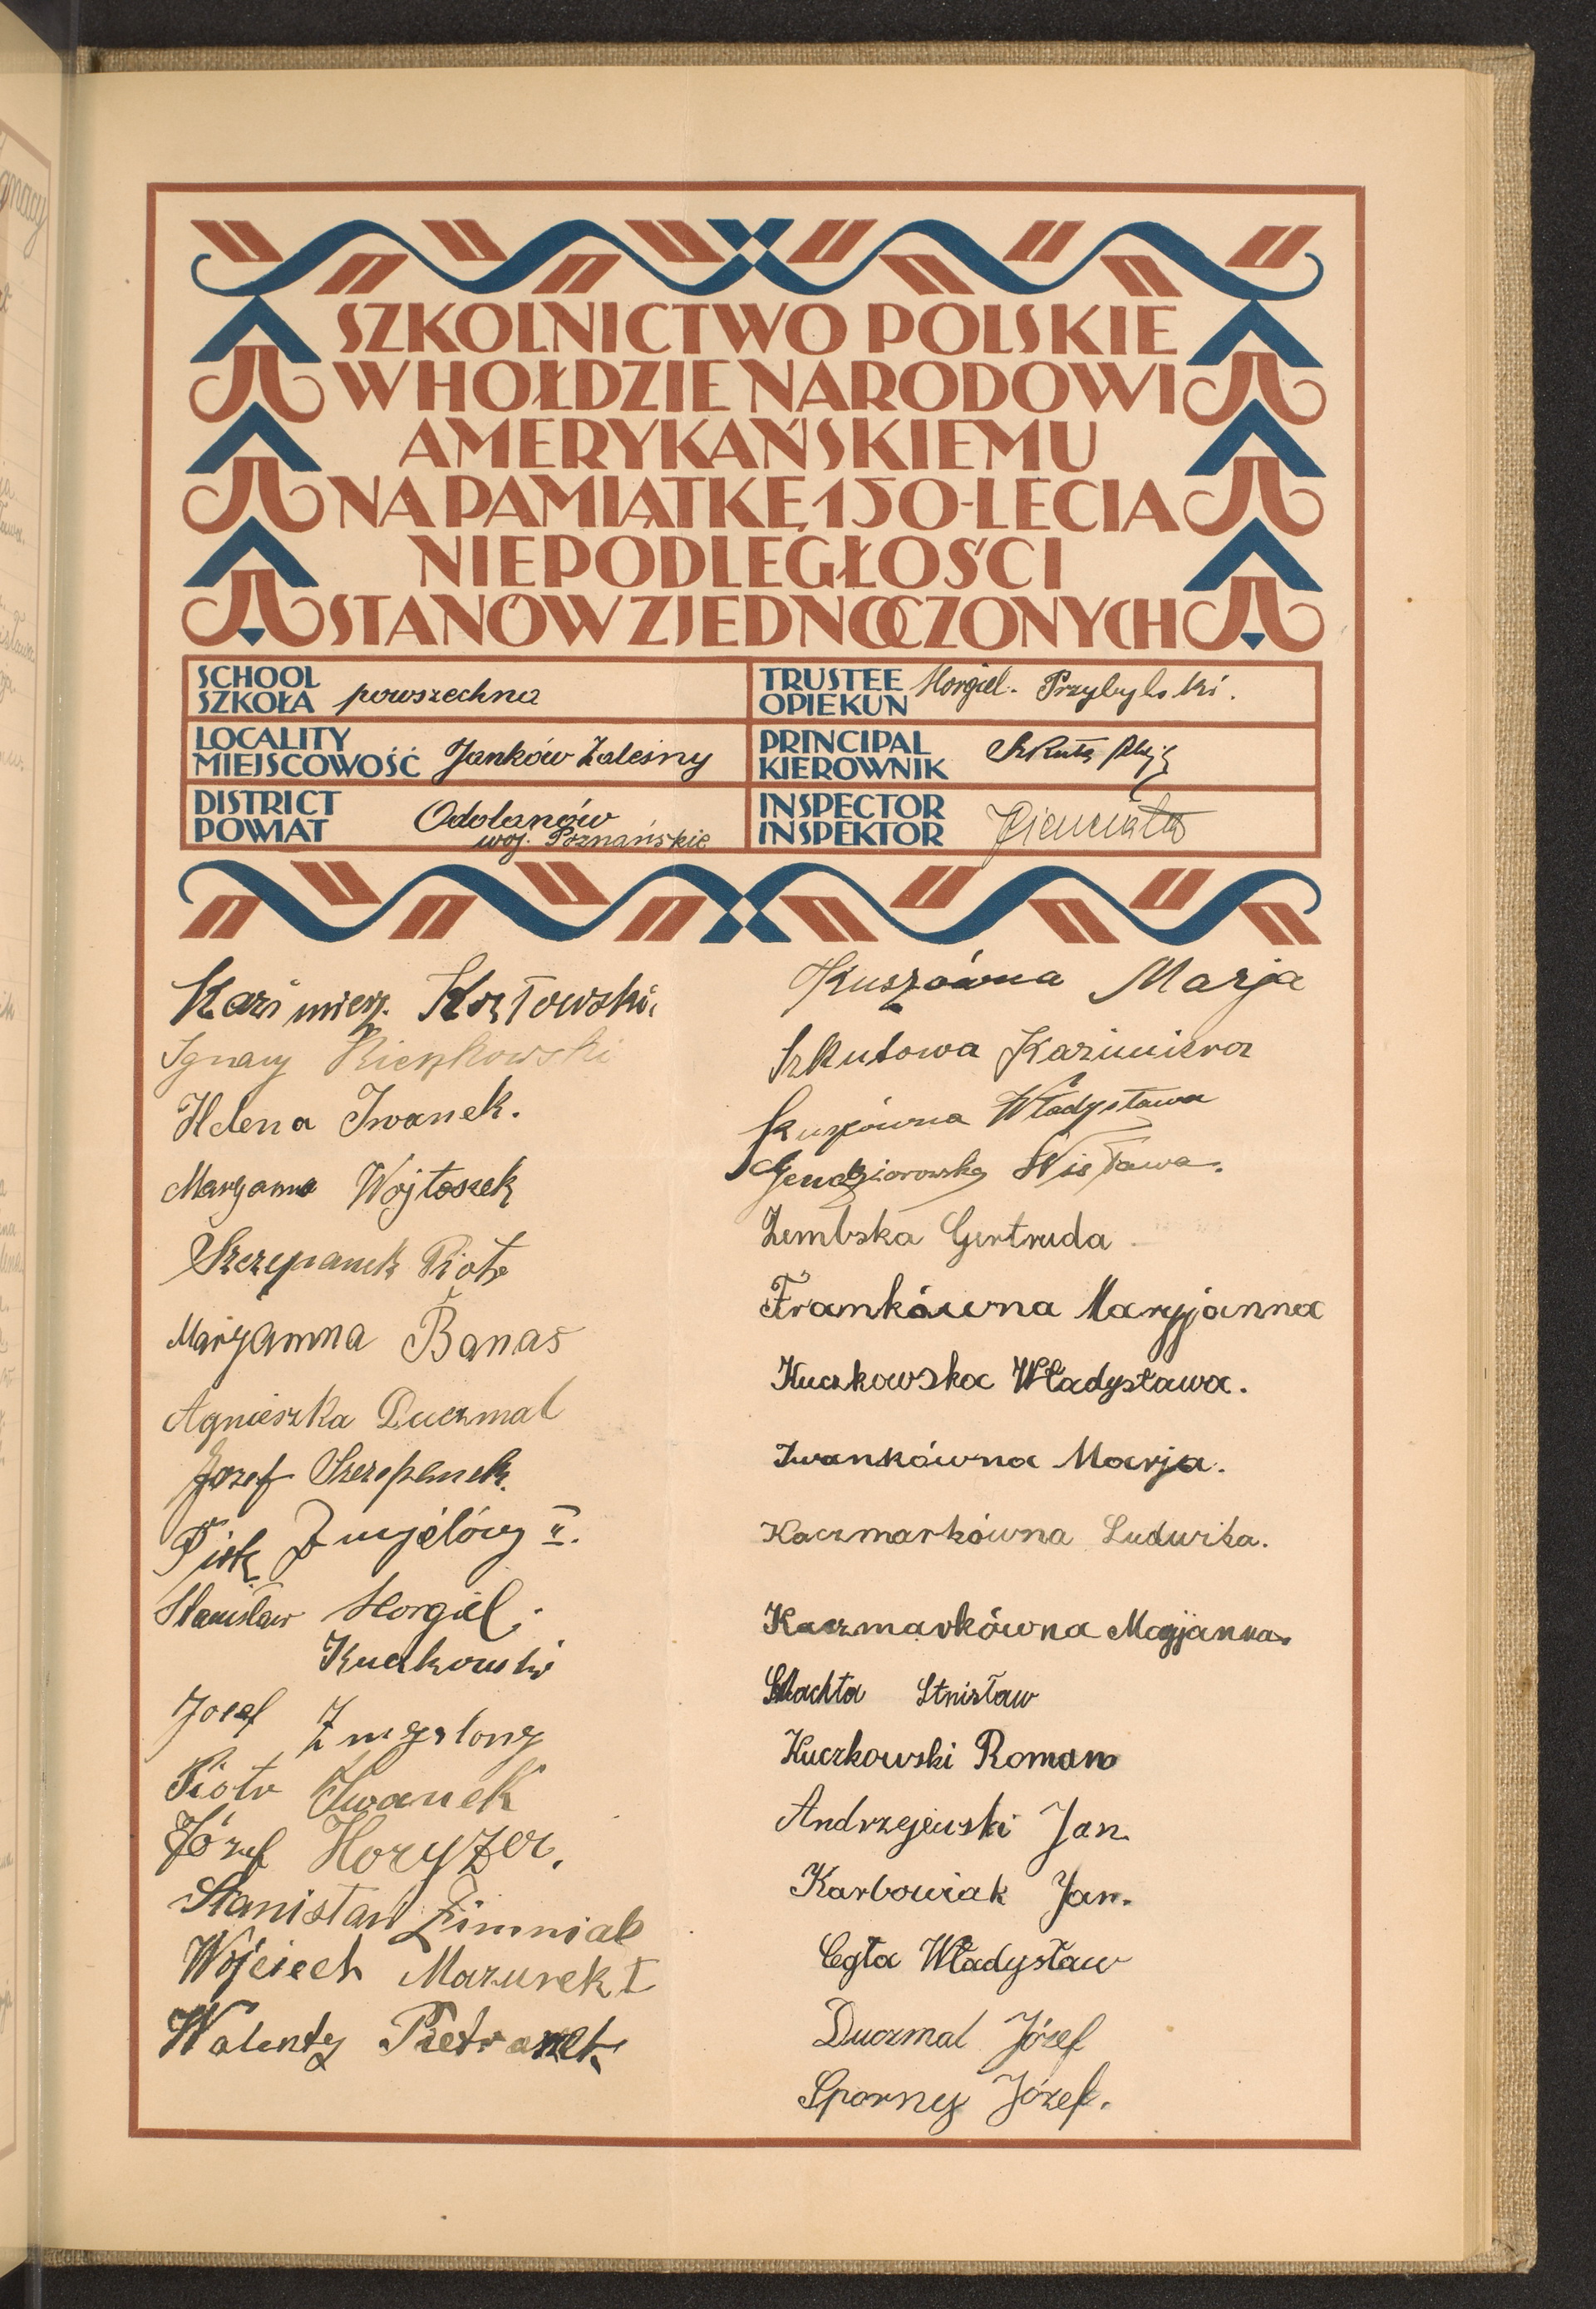 SZKOLNICTWO POLSKIE
W HOŁDZIE NARODOWI
AMERYKAŃSKIEMU
NA PAMIĄTKĘ 150-LECIA
NIEPODLEGŁOŚCI
STANÓW ZJEDNOCZONYCH
SCHOOL
SZKOŁA powszechna
TRUSTEE
OPIEKUN Horgiel. Przybylski.
LOCALITY
MIEJSCOWOŚĆ Janków Zaleśny
PRINCIPAL
KIEROWNIK Szkuta
DISTRICT
POWIAT Odolanów
woj. Poznańskie
INSPECTOR
INSPEKTOR
Kazimierz. Kozłowski.
Ignacy
Helena Iwanek.
Maryanna Wojtaszek
Szczepanek Piotr
Maryanna Banaś
Agnieszka Duczmal
Józef Szczepanek.
II.
Stanisław Horgiel.
Kuczkowski
Josef Zmyslony
Piotr Iwanek
Józef Horyza.
Stanisław Zimniak
Wojciech Mazurek I
Walenty Pietraszek
Kuszówna Marja
Szkutowa Kazimiera
Kuszówna Władysława
Gendziorowska Wisława.
Zembska Gertruda
Frankówna Maryjanna
Kuczkowska Władysława.
Iwankówna Marja.
Kaczmarkówna Ludwika.
Kaczmarkówna Maryjanna.
Szlachta Stnisław
Kuczkowski Roman
Andrzejewski Jan
Karbowiak Jan.
Cegła Władysław
Duczmal Józef
Sporny Józef.